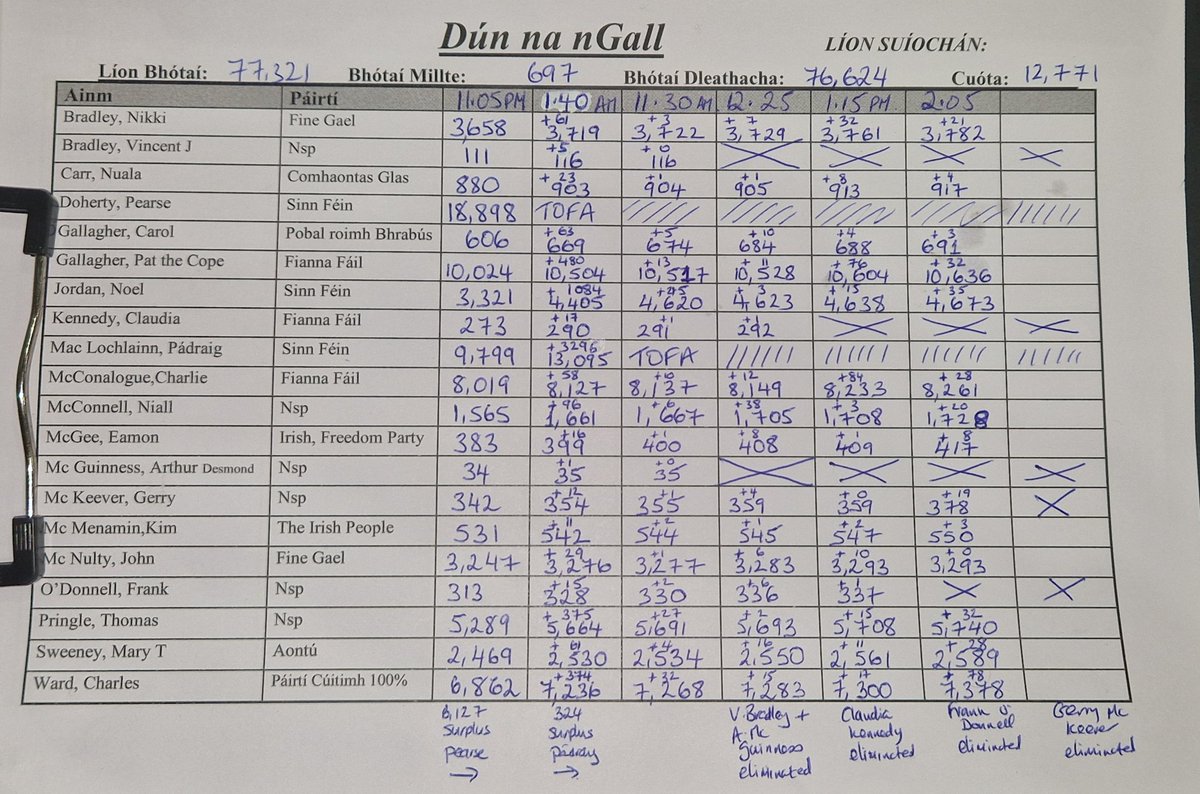 Dún na nGall
LÍON SUÍOCHÁN:
Líon Bhótaí: 77,321 Bhótaí Millte: 697 Bhótaí Dleathacha: 76,624 Cuóta: 12,771
Ainm Páirtí 11.05PM 1.40 AM 11.30 AM 12.25 1.15 PM 2.05
Bradley, Nikki Fine Gael 3,658 +61 3,719 +3 3,722 +7 3,729 +32 3,761 +21 3,782
Bradley, Vincent J Nsp 111 +5 116 +0 116
Carr, Nuala Comhaontas Glas 880 +23 903 +1 904 +1 905 +8 913 +4 917
Doherty, Pearse Sinn Féin 18,898 TOFA
Gallagher, Carol Pobal roimh Bhrabús 606 +63 669 +5 674 +10 684 +4 688 +3 691
Gallagher, Pat the Cope Fianna Fáil 10,024 +480 10,504 +13 10,517 +11 10,528 +76 10,604 +32 10,636
Jordan, Noel Sinn Féin 3,321 +1084 4,405 4,620 +3 4,623 +15 4,638 +35 4,673
Kennedy, Claudia Fianna Fáil 273 +17 290 +1 291 +1 292
Mac Lochlainn, Pádraig Sinn Féin 9,799 +3296 13,095 TOFA
McConalogue,Charlie Fianna Fáil 8,019 +58 8,127 +10 8,137 +12 8,149 +84 8,233 +28 8,261
McConnell, Niall Nsp 1,565 +96 1,661 +6 1,667 +38 1,705 +3 1,708 +20 1,728
McGee, Eamon Irish, Freedom Party 383 +16 399 +1 400 +8 408 +1 409 +8 417
Mc Guinness, Arthur Desmond Nsp 34 +1 35 +0 35
Mc Keever, Gerry Nsp 342 +12 354 +1 355 +4 359 +0 359 +19 378
Mc Menamin,Kim The Irish People 531 +11 542 +2 544 +1 545 +2 547 +3 550
Mc Nulty, John Fine Gael 3,247 +29 3,276 +1 3,277 +6 3,283 +10 3,293 +0 3,293
O'Donnell, Frank Nsp 313 +15 328 +2 330 +6 336 +1 337
Pringle, Thomas Nsp 5,289 +375 5,664 +27 5,691 +2 5,693 +15 5,708 +32 5,740
Sweeney, Mary T Aontú 2,469 +61 2,530 +4 2,534 +16 2,550 +11 2,561 +28 2,589
Ward, Charles Páirtí Cúitimh 100% 6,862 +374 7,236 +32 7,268 +15 7,283 +17 7,300 +78 7,378
6,127
surplus
pearse
324
surplus
Pádraig
V. Bradley +
A. Mc
Guinness
eliminated
Claudia
Kennedy
eliminated
Frank O'
Donnell
eliminted
Gerry Mc
Keever
eliminated